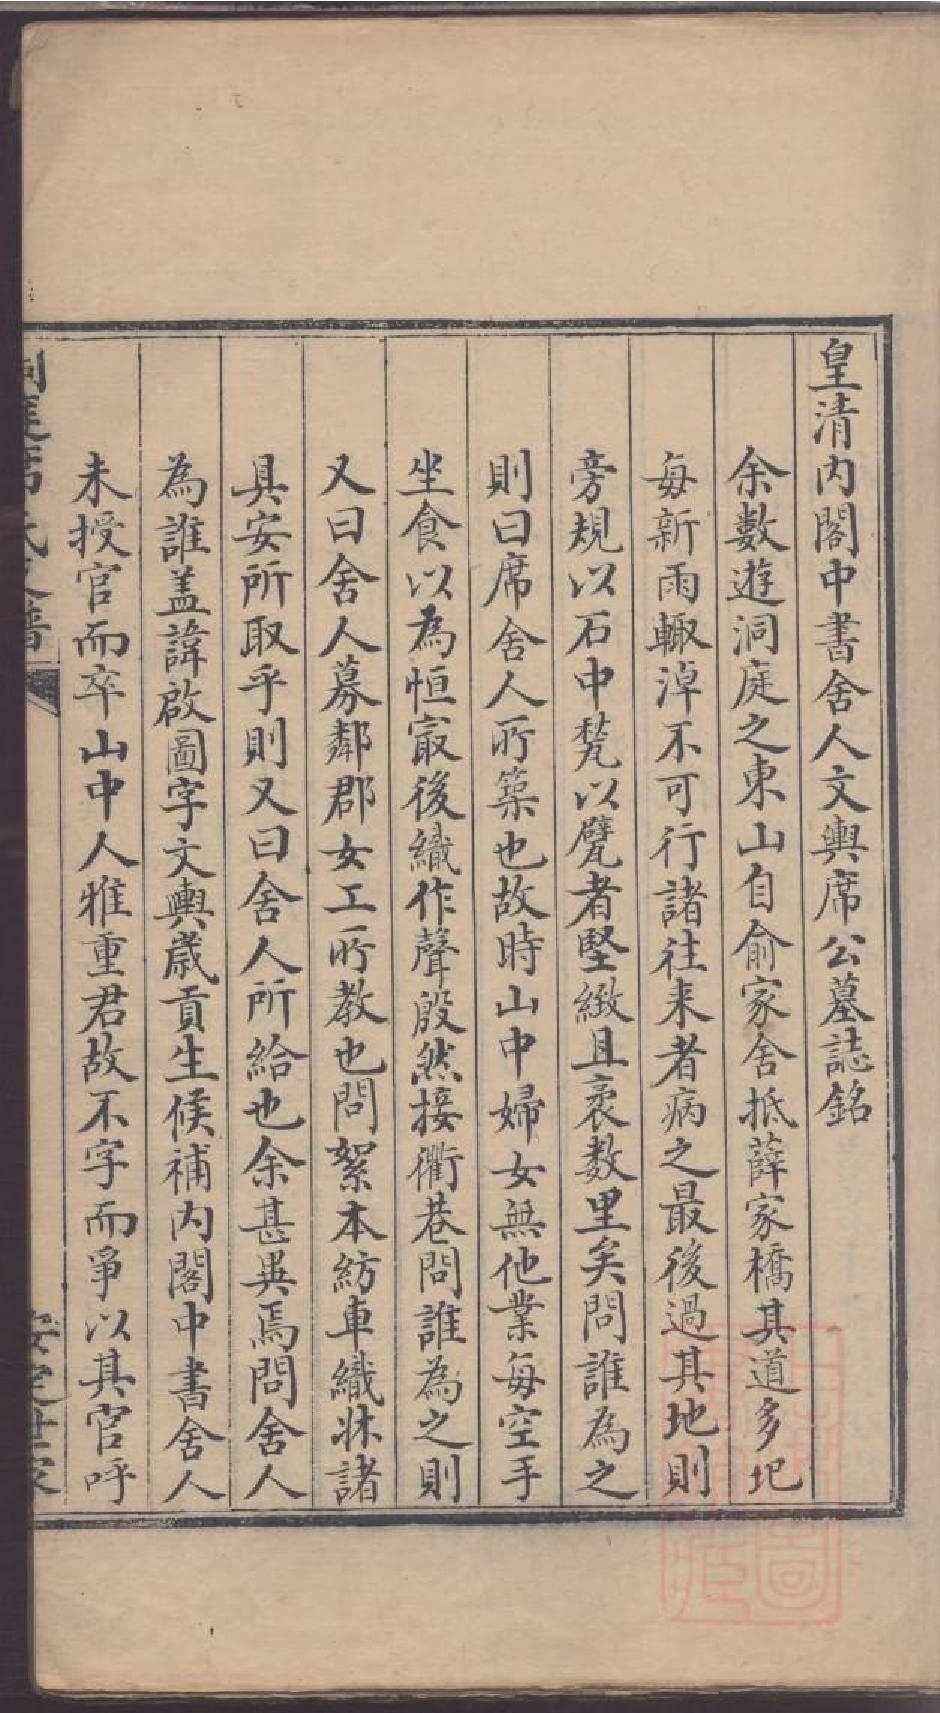 皇清内閣中書舍人文輿席公墓誌銘
余數遊洞庭之東山自俞家舍抵薛家橋其道多圯
每新雨輙淖不可行諸往来者病之最後過其地則
旁規以石中甃以甓者堅緻且袤数里矣問誰為之
則曰席舍人所築也故時山中婦女無他業每空手
坐食以為恒㝡後織作聲殷然接衢巷問誰為之則
又曰舍人募鄰郡女工所教也問絮本紡車織牀諸
具安所取乎則又曰舍人所給也余甚異焉問舍人
為誰盖諱啟圖字文輿歲貢生候補内閣中書舍人
未授官而卒山中人雅重君故不字而爭以其官呼
洞庭席氏支譜
安定世家